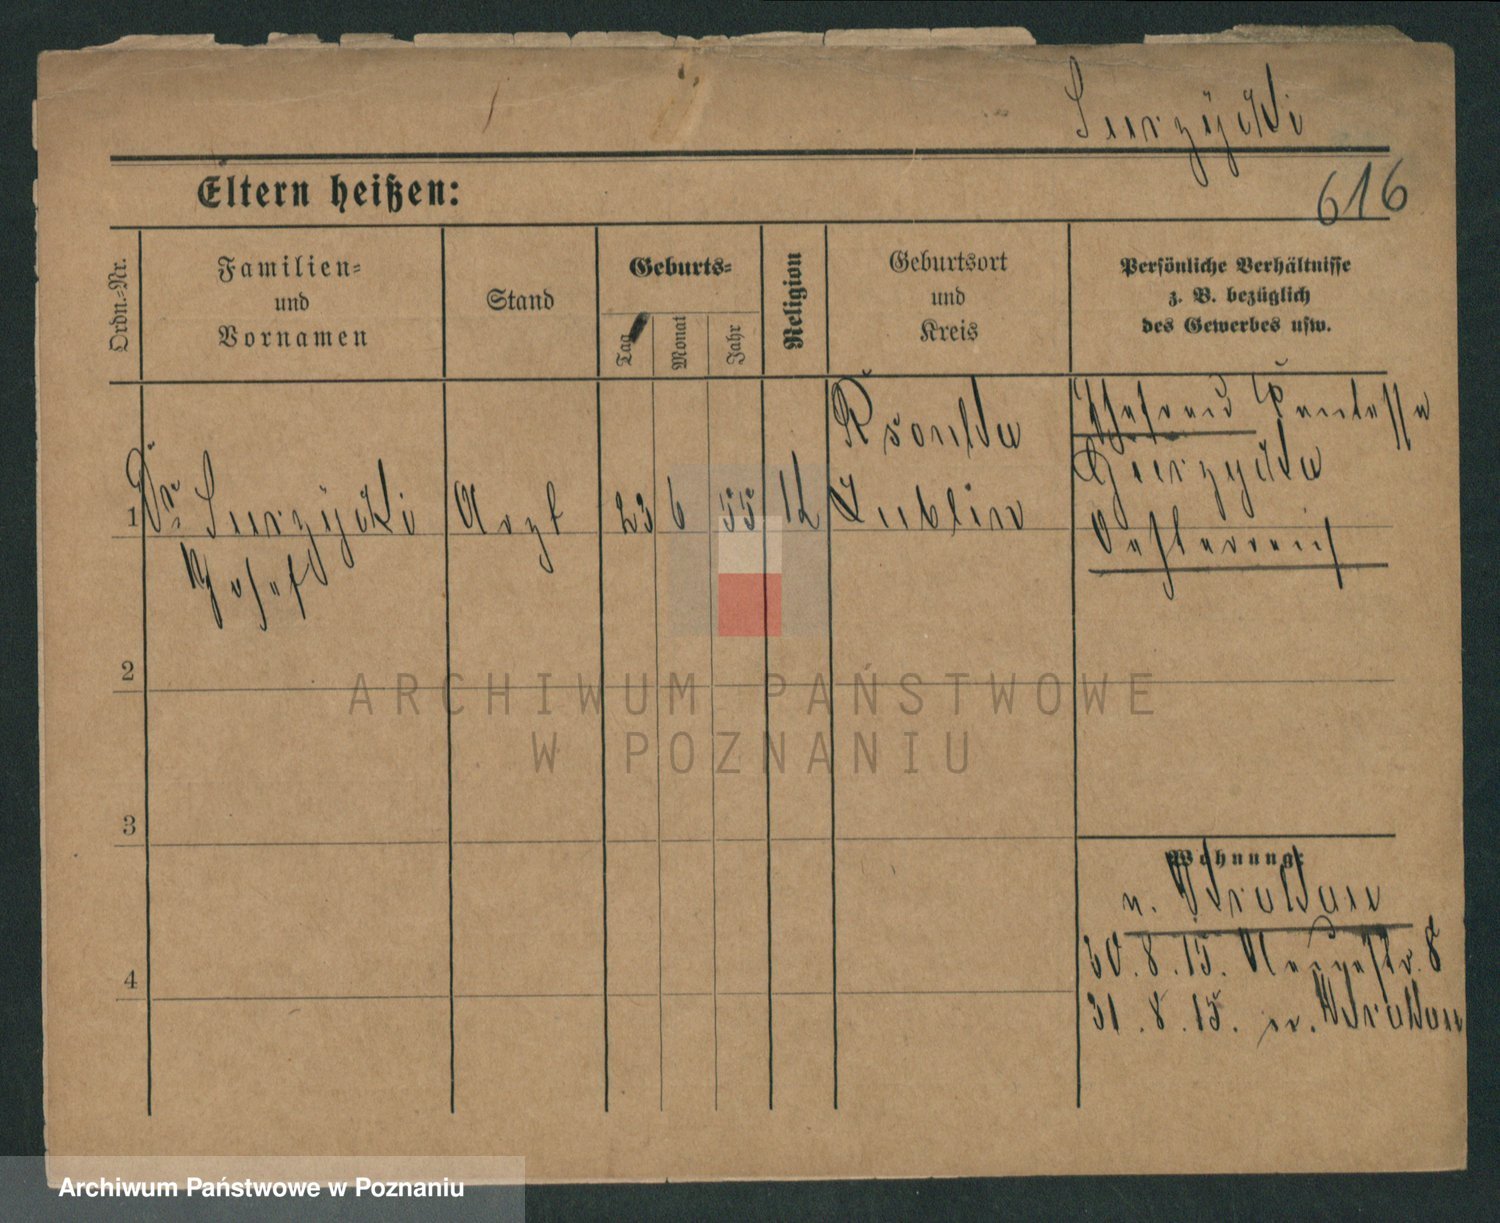 Surzÿcki
616
Eltern heißen:
Ordn.=Nr.
Familien=
und
Vornamen
Stand
Geburts=
Tag
Monat
Jahr
Religion
Geburtsort
und
Kreis
Persönliche Verhältnisse
z. B. bezüglich
des Gewerbes usw.
1
Dr. Surzÿcki
Josef
Arzt
23
6
55
Lublin
Ehefrau
Surzycka
Oesterreich
2
3
4
Wohnung:
n. Krakau
30.8.15.
31.8.15. n. Krakau
ARCHIWUM PAŃSTWOWE
W POZNANIU
Archiwum Państwowe w Poznaniu